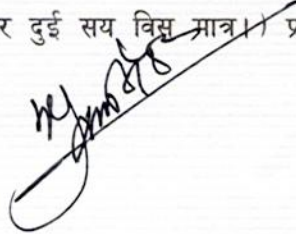 र दुई सय विस मात्र।) प्र